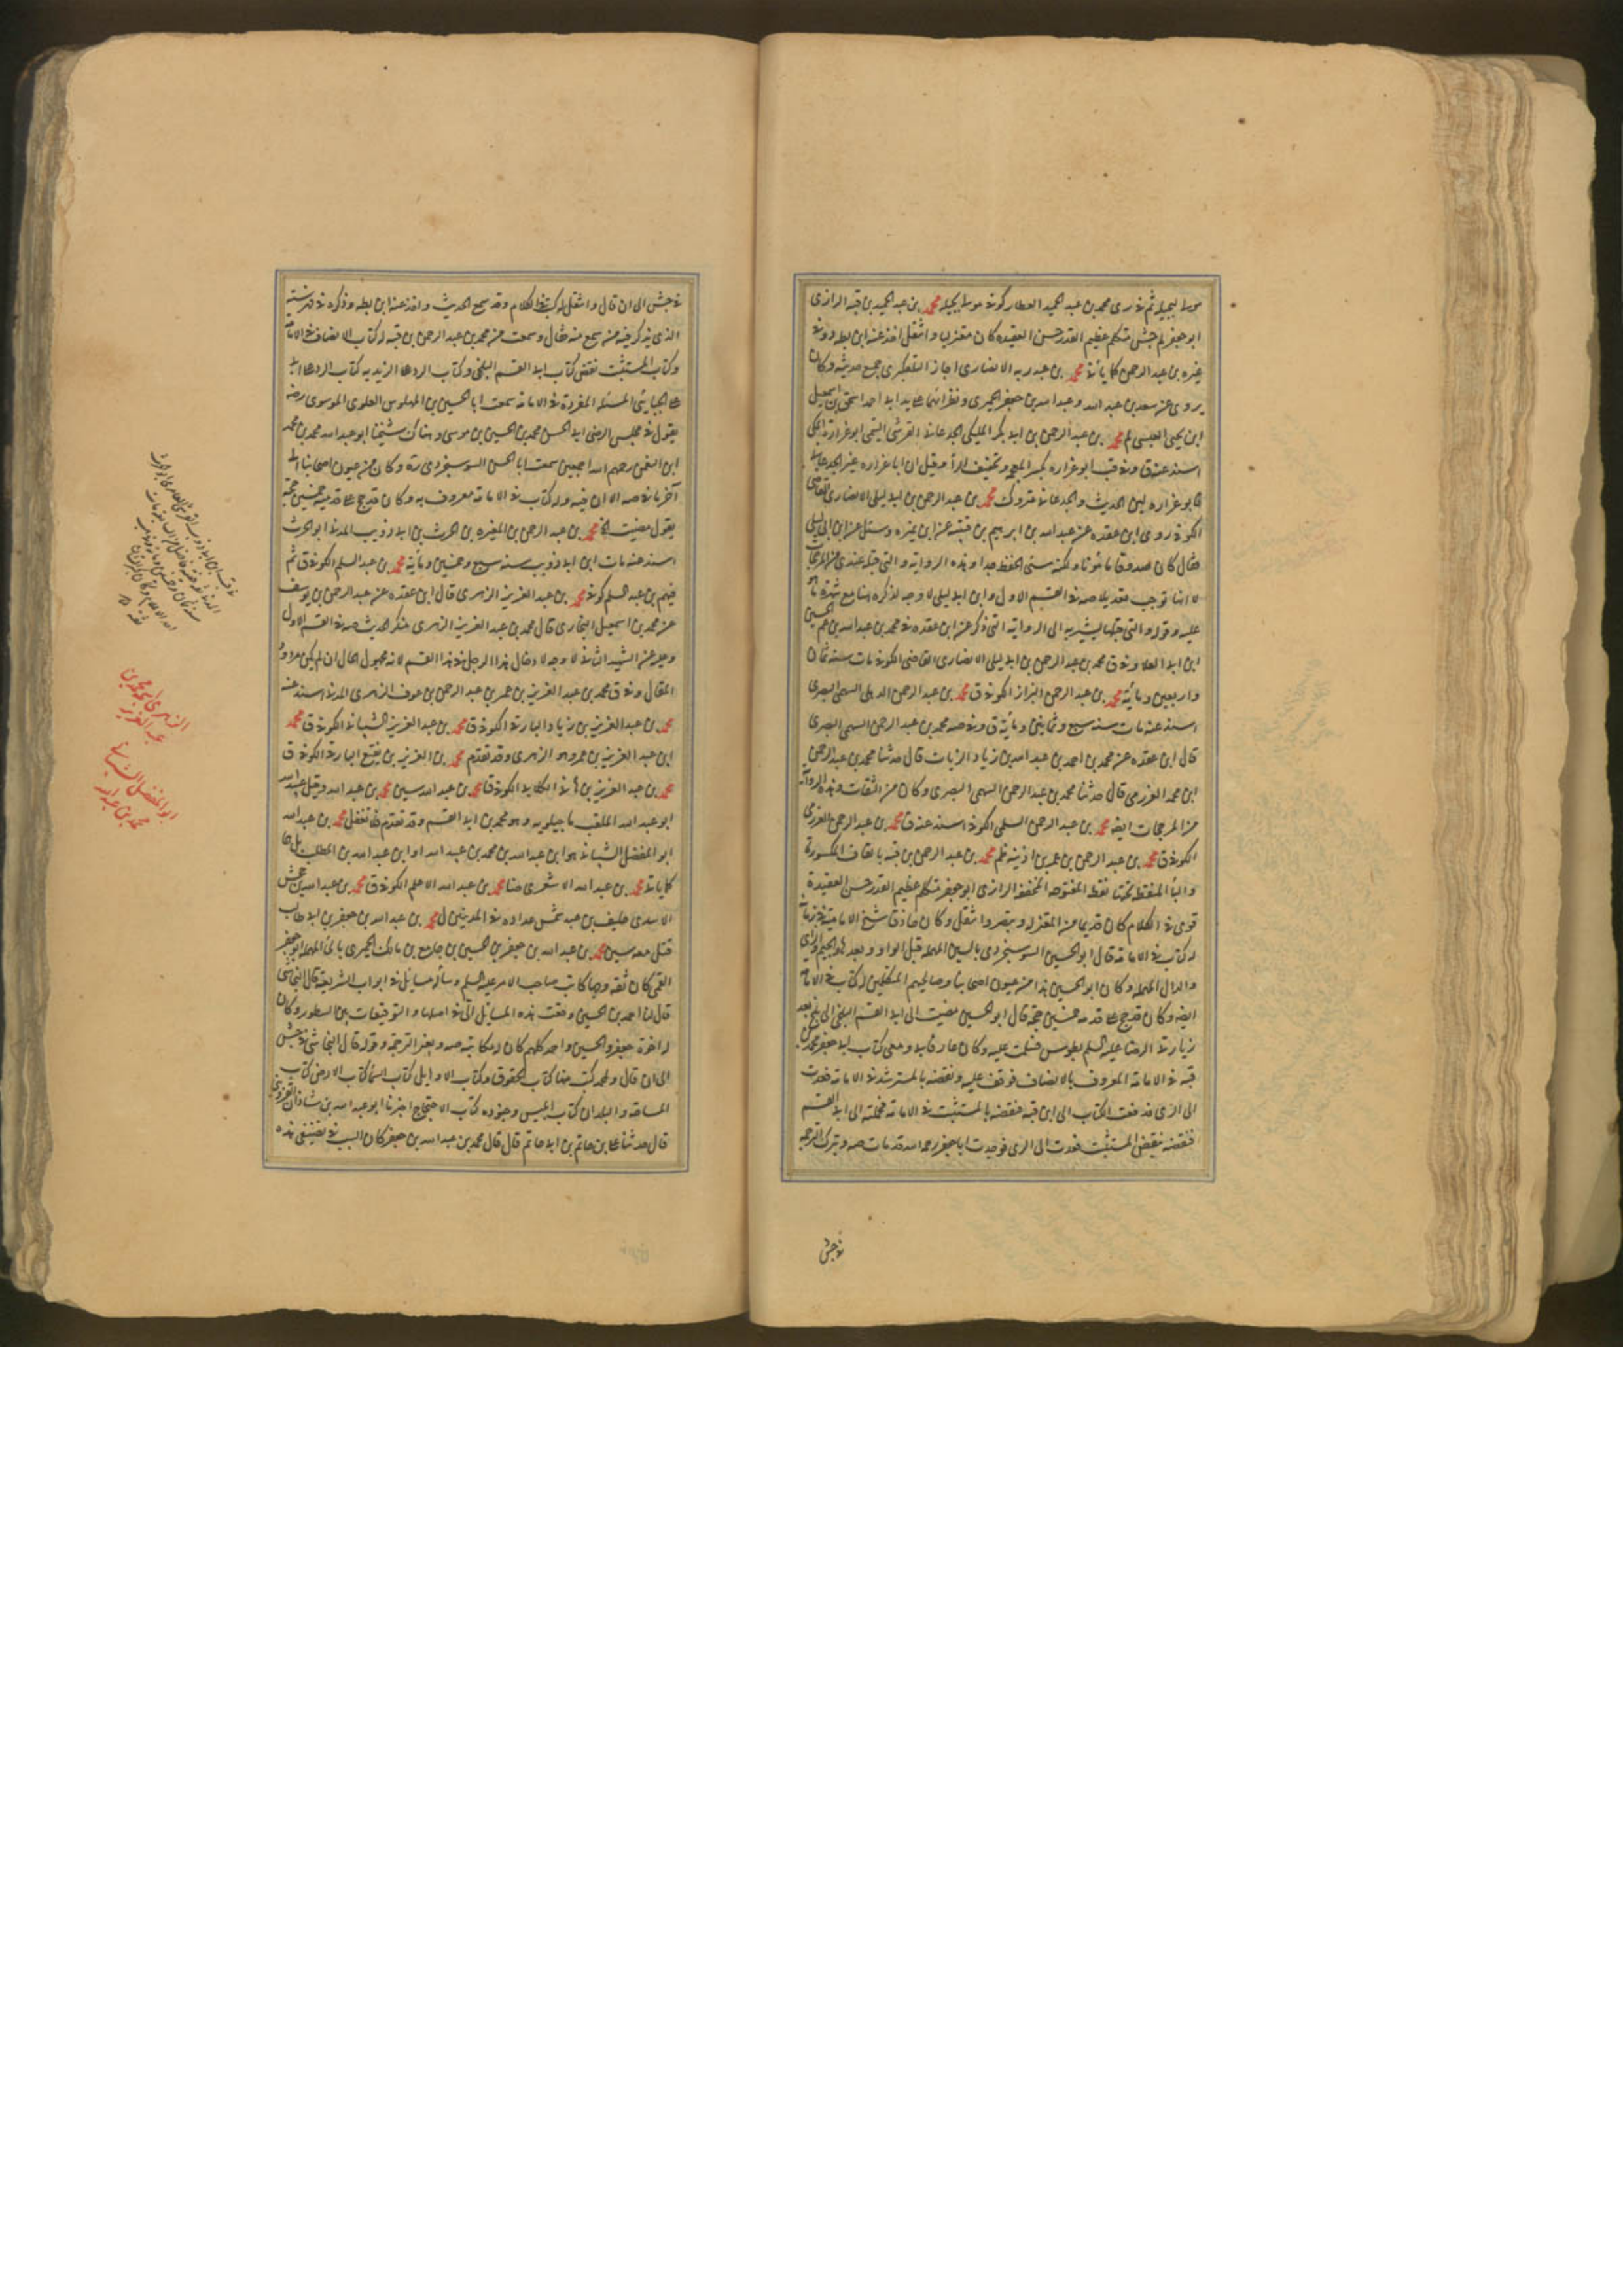 مولى بجيلة ثم في ري محمد بن عبد الحميد العطار كوفي مولى بجيلة محمد بن عبد الحميد بن قبه الرازي
ابو جعفر لم جش متكلم عظيم القدر حسن العقيده كان معتزليا وانتقل اخذ عنه ابن بطه وفي
غيره بن عبد الرحمن كما يأتي محمد بن عبد ربه الانصاري اجاز التلعكبري جميع حديثه وكان
يروي عن سعد بن عبد الله وعبد الله بن جعفر الحميري ونظرائهما محمد ابو احمد اسحق بن اسمعيل
ابن يحيى العبسي لم محمد بن عبد الرحمن بن ابي بكر المليكي الجدعاني القرشي التيمي ابو غرازة المكي
اسند عنه ق وفي قب ابو غراره بكسر المعجمه وتخفيف الراء وقيل ان ابا غراره غير الجدعاني
فابو غراره لين الحديث والجدعاني متروك محمد بن عبد الرحمن بن ابي ليلى الانصاري القاضي
الكوفي روى ابن عقده عن عبد الله بن ابرهيم بن قتيبه عن ابن نمير وسئل عن ابن ابي ليلى
فقال كان صدوقا مأمونا ولكنه سيئ الحفظ جدا وهذه الرواية والتي قبله عندي من المرجحات
لا انها توجب تعديلا صه في القسم الاول وابن ابي ليلى لا وجه لذكره هنا مع شهرة ما هو
عليه وقوله والتي قبلها يشير به الى الرواية التي ذكر عن ابن عقده في محمد بن عبد الله بن عم الحسين
ابن ابي العلا وفي ق محمد بن عبد الرحمن بن ابي ليلى الانصاري القاضي الكوفي مات سنة ثمان
واربعين ومائة محمد بن عبد الرحمن البزاز الكوفي ق محمد بن عبد الرحمن الذهلي السهمي البصري
اسند عنه مات سنة سبع وثمانين ومائة ق وفي صه محمد بن عبد الرحمن السهمي البصري
قال ابن عقده عن محمد بن احمد بن عبد الله بن زياد الزيات قال حدثنا محمد بن عبد الرحمن
ابن محمد العزرمي قال حدثنا محمد بن عبد الرحمن السهمي البصري وكان من الثقات وهذه الرواية
من المرجحات ايضا محمد بن عبد الرحمن السلمي الكوفي اسند عنه ق محمد بن عبد الرحمن العزرمي
الكوفي ق محمد بن عبد الرحمن بن عمر بن اذينه ظم محمد بن عبد الرحمن بن قبه بالقاف المكسورة
والباء المنقطة تحتها نقطة المفتوحه المخففه الرازي ابو جعفر متكلم عظيم القدر حسن العقيدة
قوي في الكلام كان قديما من المعتزله وتبصر وانتقل وكان حاذقا شيخ الامامية في زمانه
له كتاب في الامامة قال ابو الحسين السوسنجردي بالسين المهمله قبل الواو وبعدها والجيم والراء
والدال المهمله وكان ابو الحسين هذا من عيون اصحابنا وصالحيهم المتكلمين له كتاب في الامامة
ايضا وكان قد حج على قدميه خمسين حجة قال ابو الحسين مضيت الى ابي القسم البلخي الى بلخ بعد
زيارة الرضا عليه السلم بطوس فسلمت عليه وكان عارفا بي ومعي كتاب ابي جعفر محمد بن
قبه في الامامة المعروف بالانصاف فوقف عليه ونقضه بالمسترشد في الامامة فعدت
الى الري فدفعت الكتاب الى ابن قبه فنقضه بالمستثبت في الامامة فحملته الى ابي القسم
فنقضه بنقض المستثبت فعدت الى الري فوجدت ابا جعفر رحمه الله قد مات صه وبترك الترجمة
في جش
في جش الى ان قال وانتقل له كتب في الكلام وقد سمع الحديث واخذ عنه ابن بطه وذكره في فهرسته
الذي يذكر فيه من سمع منه فقال وسمعت من محمد بن عبد الرحمن بن قبه له كتاب الانصاف في الامامة
وكتاب المستثبت نقض كتاب ابي القسم البلخي وكتاب الرد على الزيديه كتاب الرد على ابي
علي الجبائي المسئلة المفردة في الامامة سمعت ابا الحسين بن المهلوس العلوي الموسوي رضه
يقول في مجلس الرضي ابي الحسن محمد بن الحسين بن موسى وهناك شيخنا ابو عبد الله محمد بن محمد
ابن النعمن رحمهم الله اجمعين سمعت ابا الحسين السوسنجردي ره وكان من عيون اصحابنا الى
آخر ما في صه الا ان فيه وله كتاب في الامامة معروف به وكان قد حج على قدميه خمسين حجة
يقول مضيت الخ محمد بن عبد الرحمن بن المغيره بن الحرث بن ابي ذويب المدني ابو الحرث
اسند عنه مات ابن ابي ذويب سنة سبع وخمسين ومائة محمد بن عبد السلم الكوفي ق ثم
فيهم بن عبد السلم كوفي محمد بن عبد العزيز الزهري قال ابن عقده عن عبد الرحمن بن يوسف
عن محمد بن اسمعيل البخاري قال محمد بن عبد العزيز الزهري منكر الحديث صه في القسم الاول
وعليه عن الشهيد الثاني لا وجه لادخال هذا الرجل في هذا القسم لانه مجهول الحال ان لم يكن مردود
المقال وفي ق محمد بن عبد العزيز بن عمر بن عبد الرحمن بن عوف الزهري المدني اسند عنه
محمد بن عبد العزيز بن زياد البارقي الكوفي ق محمد بن عبد العزيز الشيباني الكوفي ق محمد
ابن عبد العزيز بن عمر وهو الزهري وقد تقدم محمد بن العزيز بن نفيع البارقي الكوفي ق
محمد بن عبد العزيز بن هاني الكلابي الكوفي ق محمد بن عبد الله سين محمد بن عبد الله وقيل عبيد الله
ابو عبد الله الملقب ماجيلويه وهو محمد بن ابي القسم وقد تقدم فلا تغفل محمد بن عبد الله
ابو المفضل الشيباني هو ابن عبد الله بن محمد بن عبيد الله او ابن عبد الله بن المطلب بل هما
كما يأتي محمد بن عبد الله الاشعري ضا محمد بن عبد الله الاعلم الكوفي ق محمد بن عبد الله بن جحش
الاسدي حليف بن عبد شمس عداده في المدنيين ل محمد بن عبد الله بن جعفر بن ابي طالب
قتل معه سين محمد بن عبد الله بن جعفر بن الحسين بن جامع بن مالك الحميري بالحاء المهمله ابو جعفر
القمي كان ثقة وجها كاتب صاحب الامر عليه السلم وسأله مسايل في ابواب الشريعة قال النجاشي
قال لنا احمد بن الحسين وقعت هذه المسايل الي في اصلها والتوقيعات بين السطور وكان
له اخوة جعفر والحسين واحمد كلهم كان له مكاتبة صه وبغير الترجمة وقوله قال النجاشي في جش
الى ان قال ولمحمد كتب منها كتاب الحقوق وكتاب الاوايل كتاب السماء كتاب الارض كتاب
المساحة والبلدان كتاب ابليس وجنوده كتاب الاحتجاج اخبرنا ابو عبد الله بن شاذان القزويني
قال حدثنا علي بن حاتم بن ابي حاتم قال قال محمد بن عبد الله بن جعفر كان السبب في تصنيفي هذه
الزهري محمد بن
عبد العزيز
ابو المفضل الشيباني
محمد بن عبد الله